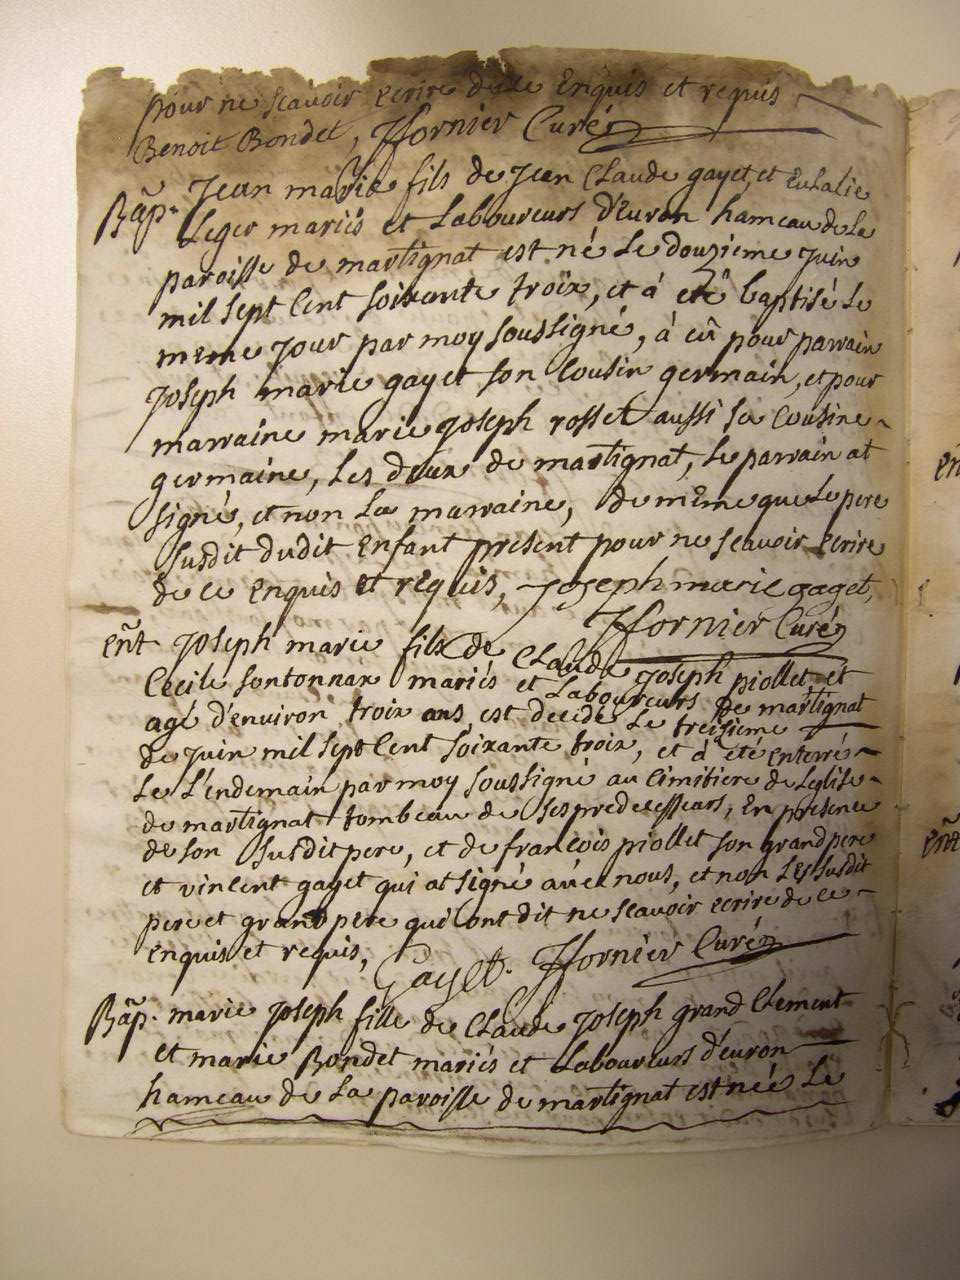 pour ne scavoir ecrire de ce Enquis et requis
Benoit Bondet, ffornier Curé
Bãp. Jean marie fils de Jean Claude gayet, et Eulalie
Leger mariés et Laboureurs d'Euron hameau de La
paroisse de martignat est né Le douzieme Juin
mil sept Cent soixante troix, et à eté baptisé Le
meme Jour par moy soussigné, à eû pour parrain
Joseph marie gayet son Cousin germain, et pour
marraine marie Joseph rosset aussi sa Cousine
germaine, Les deux de martignat, Le parrain at
signé, et non La marraine, de même que Le pere
susdit dudit Enfant present pour ne scavoir ecrire
de ce Enquis et requis, Joseph marie gaget,
ffornier Curé
Eñt Joseph marie fils de Claude Joseph piollet et
Cecile sontonnax mariés et Laboureurs de martignat
agé d'environ troix ans est decedé Le treizieme
de Juin mil sept Cent soixante troix, et à été enterré
Le L'endemain par moy soussigné au Cimitiere de Leglise
de martignat tombeau de ses predecesseurs, En presence
de son susdit pere, et de francois piollet son grand pere
et vincent gayet qui at signé avec nous, et non Les susdit
pere et grand pere qui ont dit ne scavoir ecrire de ce
Enquis et requis, Gayet. ffornier Curé
Bãp. marie Joseph fille de Claude Joseph grand Clement
et marie Bondet mariés et Laboureurs d'euron
hameau de La paroisse de martignat est née Le